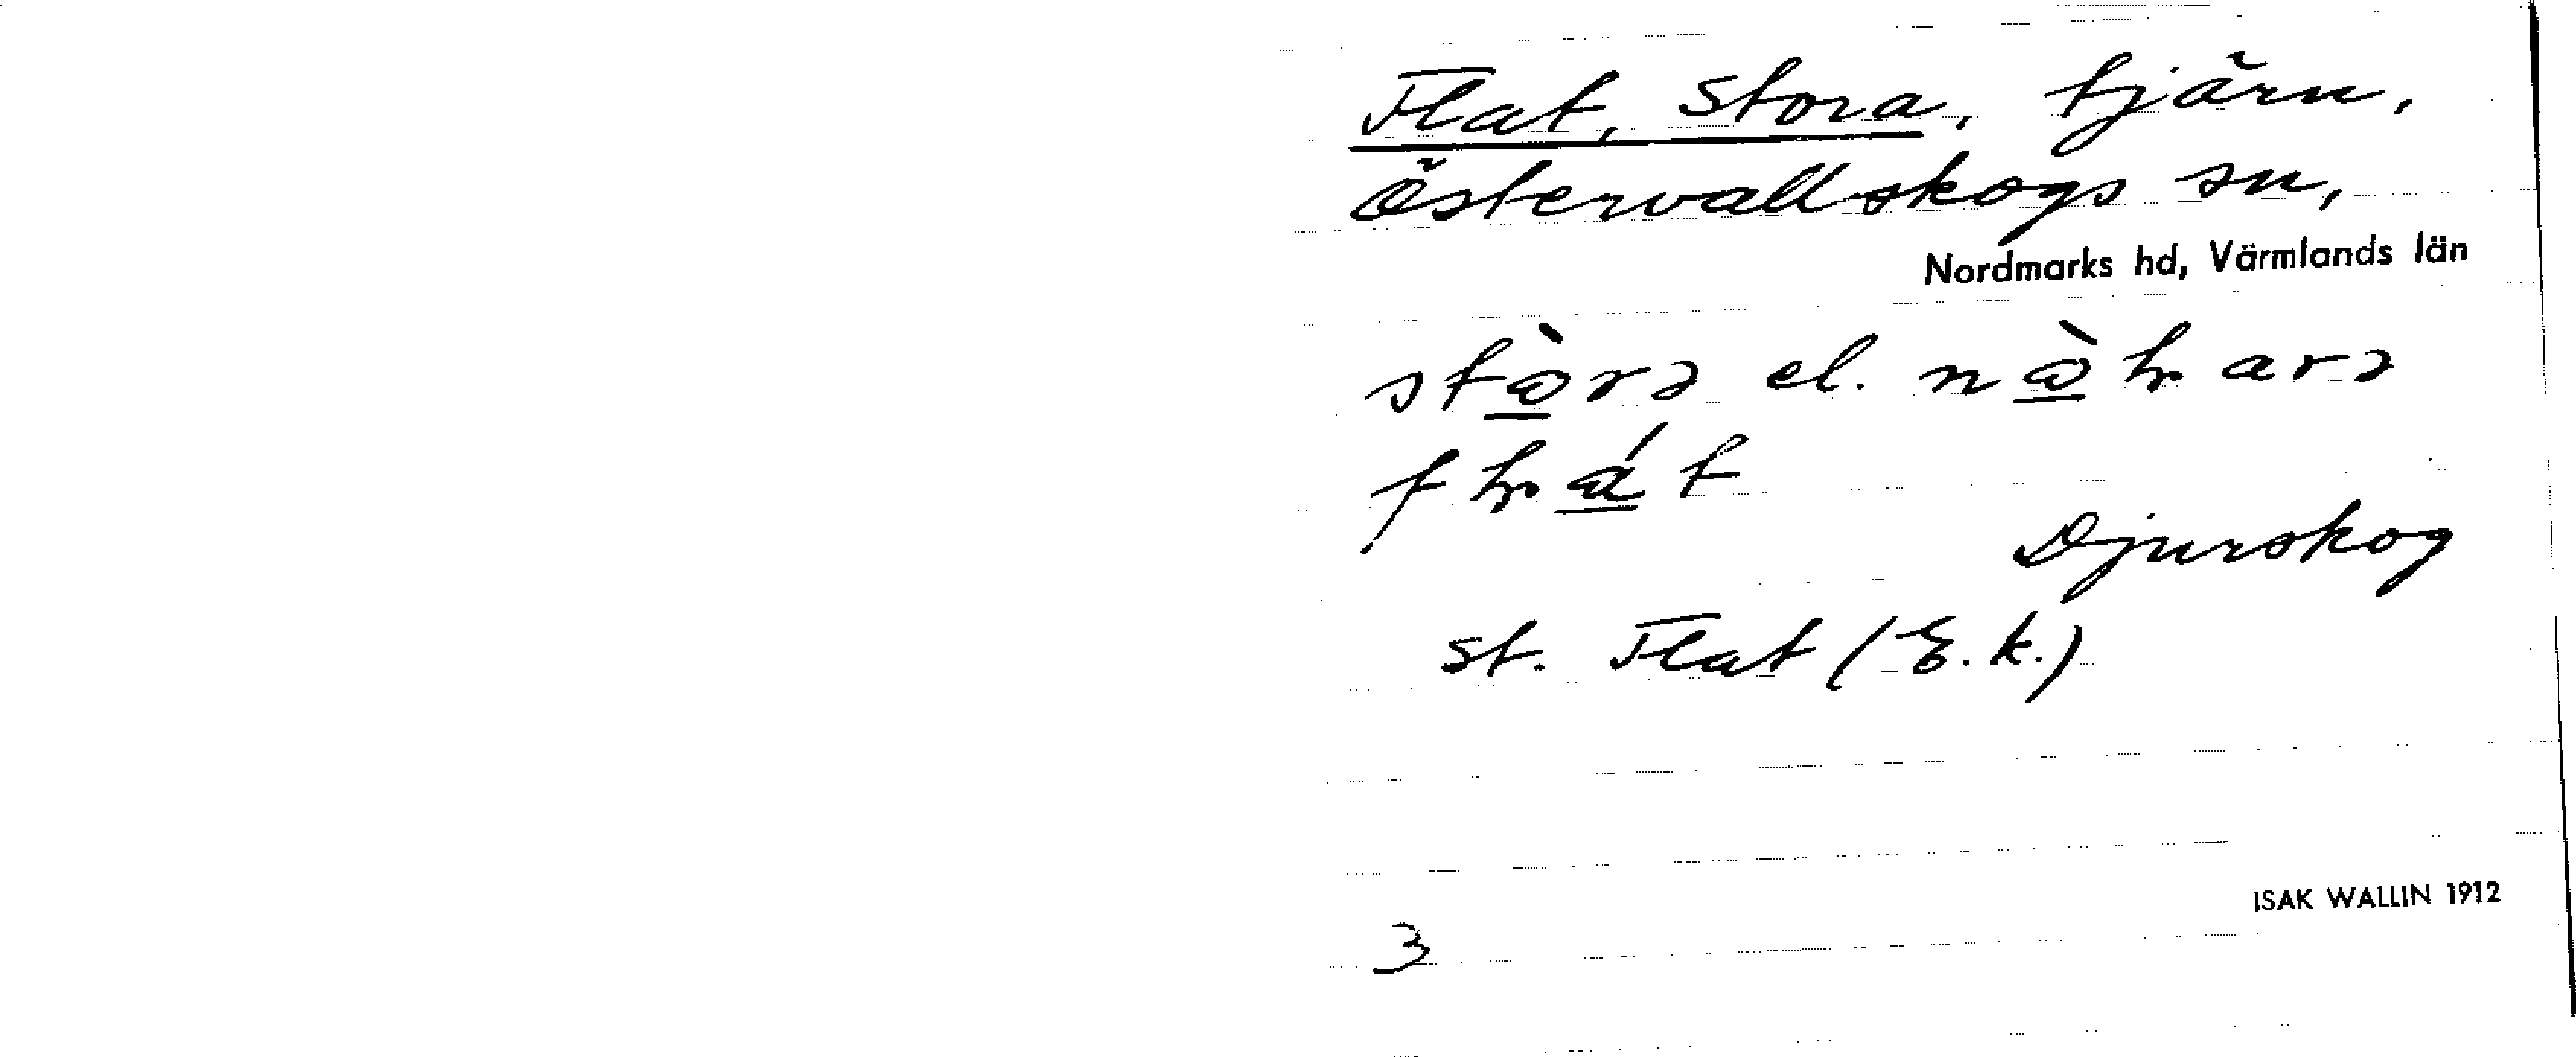 Flat, Stora, tjärn,
Östervallskogs sn,
Nordmarks hd, Värmlands län
el.
Djurskog
St. Flat (E.k.)
ISAK WALLIN 1912
3